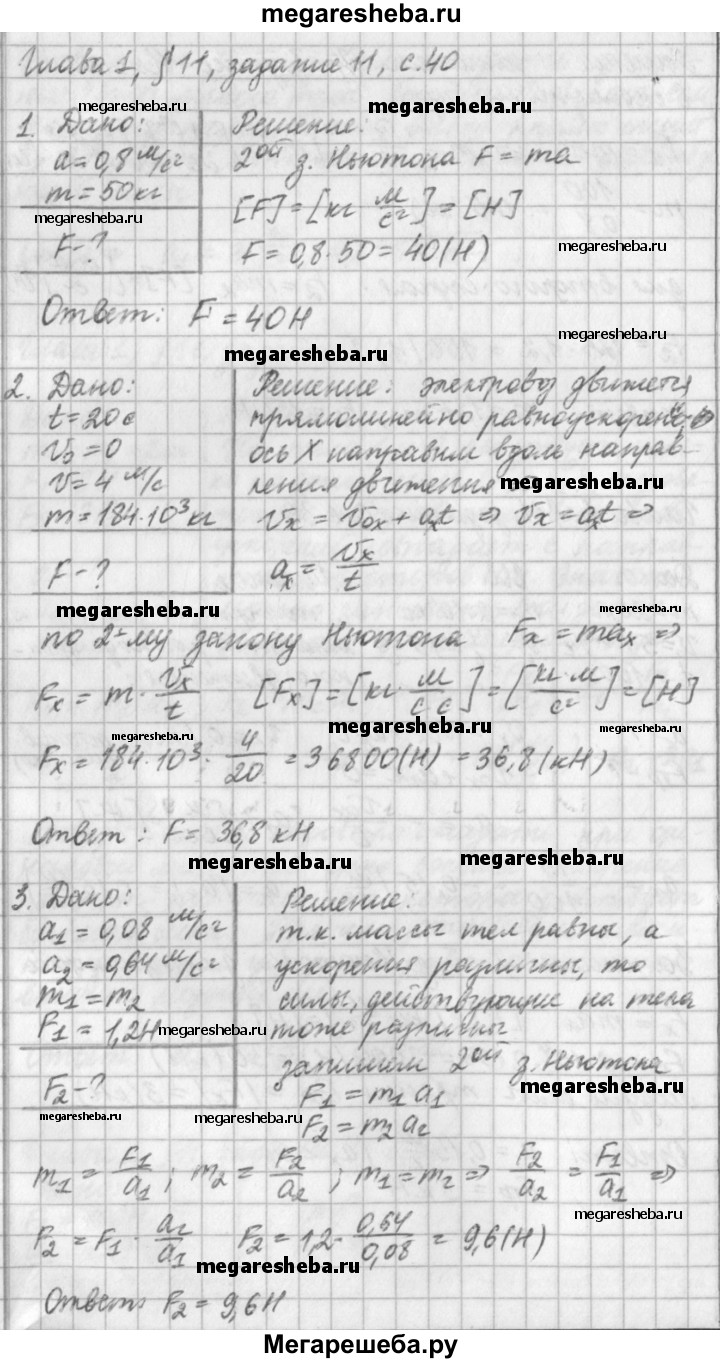 megaresheba.ru
Глава 1, §11, задание 11, с.40
megaresheba.ru
megaresheba.ru
1. Дано:
a=0,8 м/с²
m=50кг
megaresheba.ru
F-?
Решение:
2ой з. Ньютона F=ma
[F]=[кг м/с²]=[Н]
F=0,8·50=40(Н)
Ответ: F=40Н
megaresheba.ru
megaresheba.ru
2. Дано:
t=20с
v₀=0
v=4 м/с
m=184·10³кг
F-?
Решение: электровоз движется
прямолинейно равноускорено⇒
ось X направим вдоль направ-
ления движения
megaresheba.ru
vx = v0x + axt ⇒ vx = axt ⇒
ax = vx/t
megaresheba.ru
megaresheba.ru
по 2-му закону Ньютона Fx = max ⇒
Fx = m · vx/t [Fx]=[кг· м/с·с]=[кг·м/с²]=[Н]
megaresheba.ru
megaresheba.ru
megaresheba.ru
Fx=184·10³· 4/20 = 36800(Н) = 36,8(кН)
Ответ: F= 36,8 кН
megaresheba.ru
megaresheba.ru
3. Дано:
a1=0,08 м/с²
a2=0,64 м/с²
m1=m2
F1=1,2Н
megaresheba.ru
F2-?
Решение:
т.к. массы тел равны, а
ускорения различны, то
силы, действующие на тела
тоже различны
запишем 2ой з. Ньютона
megaresheba.ru
F1=m1a1
F2=m2a2
megaresheba.ru
megaresheba.ru
m1 = F1/a1; m2 = F2/a2; m1=m2 ⇒ F2/a2 = F1/a1 ⇒
megaresheba.ru
F2 = F1 · a2/a1 F2=1,2· 0,64/0,08 = 9,6(Н)
megaresheba.ru
Ответ: F2 = 9,6Н
Мегарешеба.ру